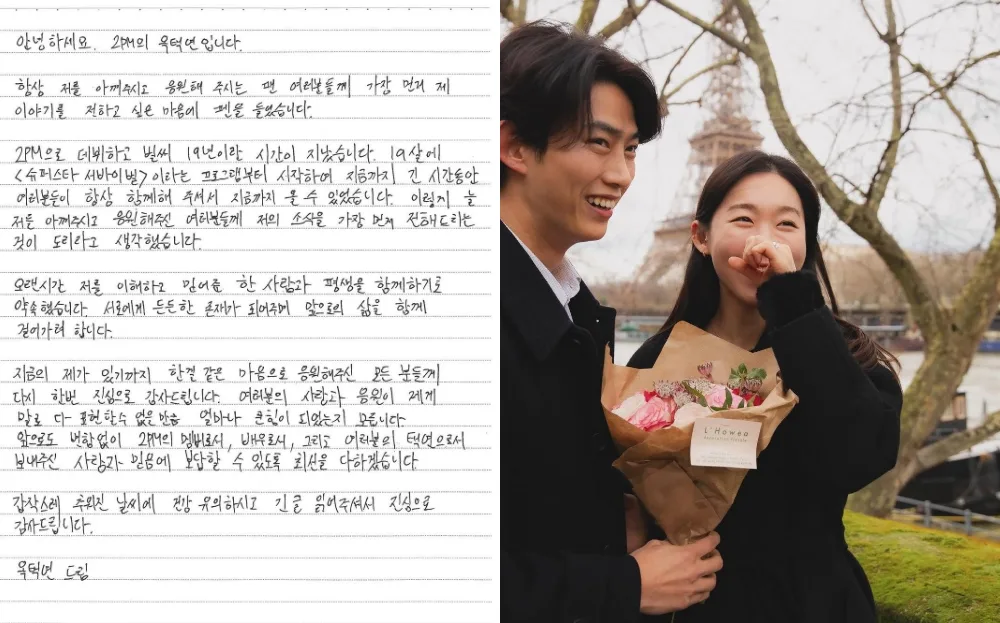 안녕하세요. 2PM의 옥택연입니다.
항상 저를 아껴주시고 응원해 주시는 팬 여러분들께 가장 먼저 제
이야기를 전하고 싶은 마음에 펜을 들었습니다.
2PM으로 데뷔하고 벌써 19년이란 시간이 지났습니다. 19살에
<슈퍼스타 서바이벌>이라는 프로그램부터 시작하여 지금까지 긴 시간동안
여러분들이 항상 함께해 주셔서 지금까지 올 수 있었습니다. 이렇게 늘
저를 아껴주시고 응원해주신 여러분들께 저의 소식을 가장 먼저 전해드리는
것이 도리라고 생각했습니다.
오랜시간 저를 이해하고 믿어준 한 사람과 평생을 함께하기로
약속했습니다. 서로에게 든든한 존재가 되어주며 앞으로의 삶을 함께
걸어가려 합니다.
지금의 제가 있기까지 한결 같은 마음으로 응원해주신 모든 분들께
다시 한번 진심으로 감사드립니다. 여러분의 사랑과 응원이 제게
말로 다 표현할수 없을만큼 얼마나 큰힘이 되었는지 모릅니다
앞으로도 변함없이 2PM의 멤버로서, 배우로서, 그리고 여러분의 택연으로서
보내주신 사랑과 믿음에 보답할 수 있도록 최선을 다하겠습니다
갑작스레 추워진 날씨에 건강 유의하시고 긴 글 읽어주셔서 진심으로
감사드립니다.
옥택연 드림
L'Howea